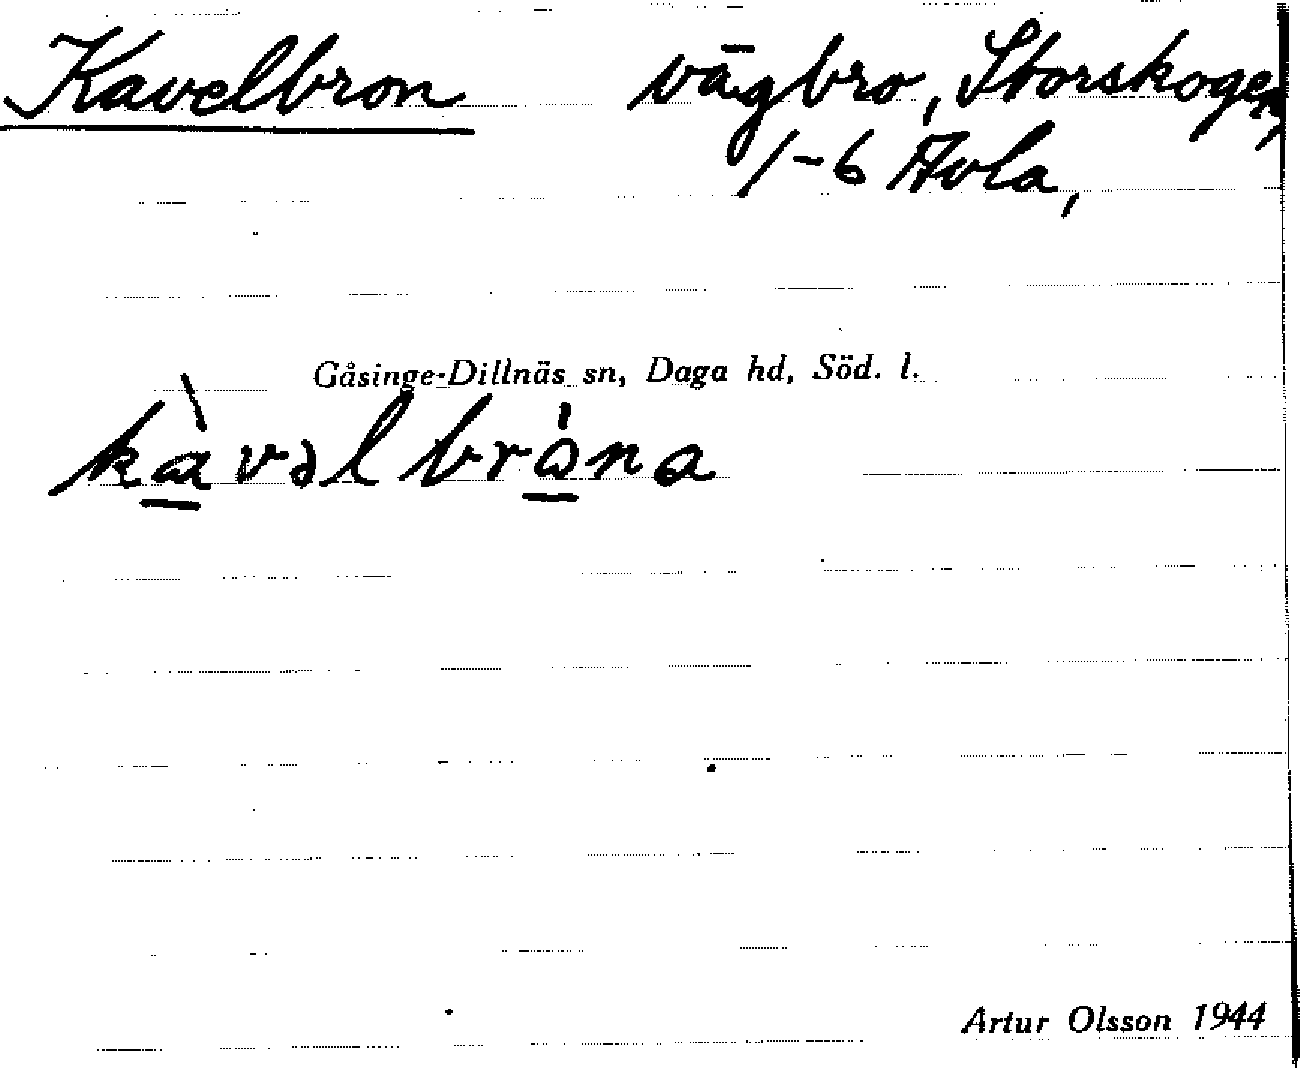 Kavelbron vägbro, Storskogen,
1-6 Avla,
Gåsinge-Dillnäs sn, Daga hd, Söd. l.
kàvəlbròna
Artur Olsson 1944